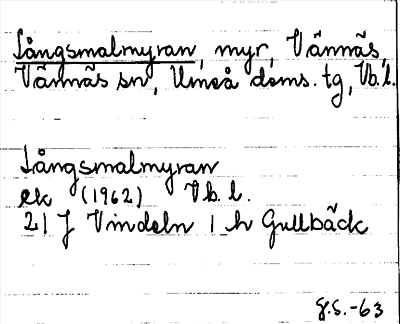 Långsmalmyran, myr, Vännäs,
Vännäs sn, Umeå doms. tg, Vb. l.
Långsmalmyran
ek (1962) Vb. l.
21 J Vindeln 1 h Gullbäck
g.s.-63